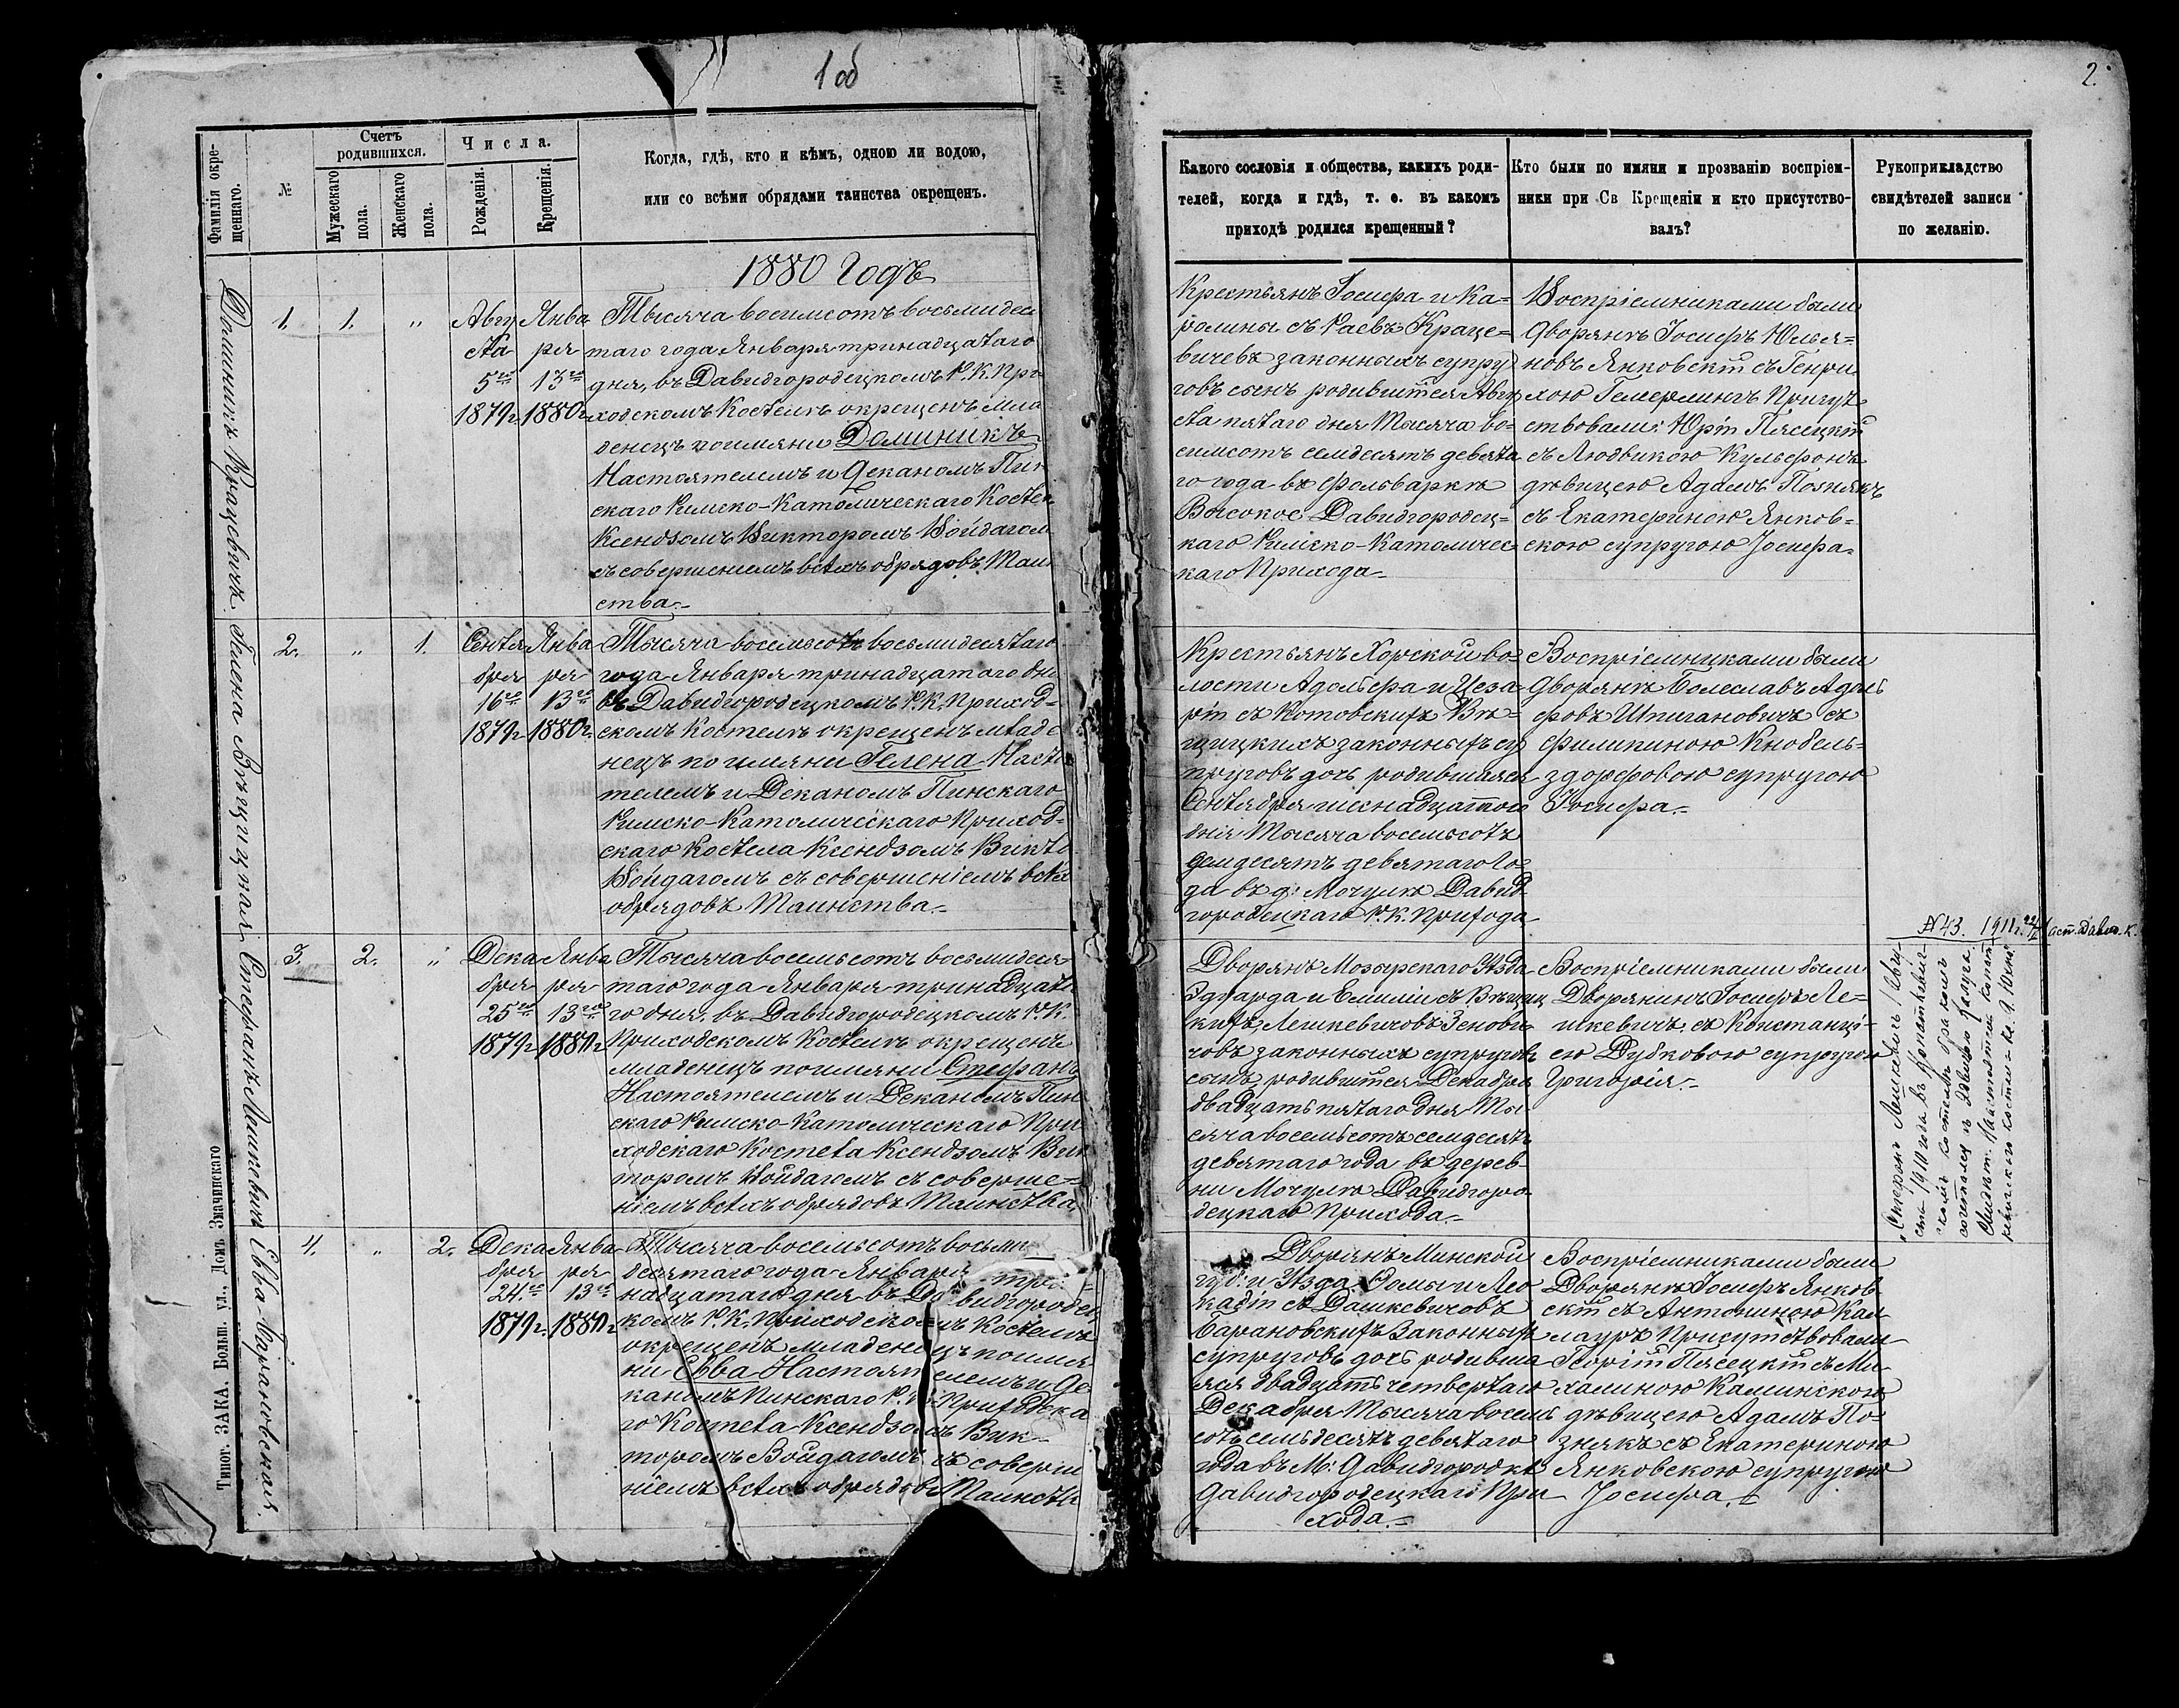 1об
Фамилія окре-
щеннаго.
№
Счетъ
родившихся.
Мужескаго
пола.
Женскаго
пола.
Числа.
Рожденія.
Крещенія.
Когда, гдѣ, кто и кѣмъ, одною ли водою,
или со всѣми обрядами таинства окрещенъ.
1880 Годъ
Доминикъ Крацевичъ
1.
1.
"
Авгу
ста
5го
1879г
Янва
ря
13го
1880г
Тысяча восимсотъ восьмидеся
таго года Января тринадцатаго
дня, въ Давидгородецкомъ Р. К. При
ходскомъ Костелѣ окрещенъ мла
денецъ поимяни Доминикъ
Настоятелемъ и Деканомъ Пин
скаго Римско-Католическаго Косте
Ксендзомъ Викторомъ Войдагом
съ совершеніемъ всѣхъ обрядовъ Таин
ства.
Гелена Вѣцицкая
2.
"
1.
Сентя
бря
16го
1879г
Янва
ря
13го
1880г.
Тысяча восемьсотъ восьмидесятаго
года Января тринадцатаго дня
въ Давидгородецкомъ Р. К. Приход-
скомъ Костелѣ окрещенъ младе
нецъ по имяни Гелена Насто
телемъ и Деканомъ Пинскаго
Римско-Католическаго Приход-
скаго Костела Ксендзомъ Викто
Войдагомъ съ совершеніемъ всѣх
обрядовъ Таинства.
Стефанъ Лешкевичъ
3.
2.
"
Дека
бря
25го
1879г
Янва
ря
13го
1880г
Тысяча восемьсотъ восьмидеся-
таго года Января тринадцата
го дня. въ Давидгородецкомъ Р. К.
Приходскомъ Костелѣ окрещенъ
младенецъ поимяни Стефанъ
Настоятелемъ и Деканомъ Пин
скаго Римско Католическаго При
ходскаго Костела Ксендзомъ Вик
торомъ Войдагомъ съ соверше=
ніемъ всѣхъ обрядовъ Таинства
Евва Барановская.
4.
"
2.
Дека
бря
24го
1879г.
Янва
ря
13го
1880г
Тысяча восемьсотъ восьми
десятаго года Января три
надцатаго дня въ Давидгородец
комъ Р. К. Приходскомъ Костелѣ
окрещенъ младенецъ поимя
ни Евва Настоятелемъ и Де
каномъ Пинскаго Р. К. Приходска
го Костела Ксендзомъ Вик-
торомъ Войдагомъ съ соверше
ніемъ всѣхъ обрядовъ Таинства
Типог. ЗАКА, Больш. ул., Домъ Значинскаго
2.
Какого сословія и общества, какихъ роди-
телей, когда и гдѣ, т. е. въ какомъ
приходѣ родился крещенный?
Кто были по имяни и прозванію воспріем-
ники при Св Крещеніи и кто присутство-
валъ?
Рукоприкладство
свидѣтелей записи
по желанію.
Крестьянъ Іосифа и Ка=
ролины съ Раевъ Краце=
вичевъ законныхъ супру
говъ сынъ родившійся Авгу
ста пятаго дня Тысяча во=
симсотъ семдесятъ девята
го года въ фольваркѣ
Высокое Давидгородец=
каго Римско-Католичес
каго Прихода
Воспріемниками были
Дворянъ Іосифъ Юлья=
новъ Янковскій съ Генри
хою Гемерлингъ Присут
ствовали: Юрій Пясецкій
съ Людвикою Кульфонъ
дѣвицею Адамъ Познякъ
съ Екатериною Янков=
скою супругою Іосифа
Крестьянъ Хорской во=
лости Адольфа и Цеза
ріи съ Котовскихъ Вѣ=
цицкихъ законныхъ су
пруговъ дочь родившаяся
Сентября шеснадцатого
дня Тысяча восемьсотъ
семдесятъ девятаго го
да въ д: Мочулѣ Давид
городецкаго Р. К. Прихода
Воспріемниками были
Дворянъ Болеславъ Адоль
фовъ Шпигановичъ съ
Филипиною Кнобель-
здорфовою супругою
Іосифа.
Дворянъ Мозырскаго Уѣзда
Эдуарда и Емиліи съ Вѣциц
кихъ Лешкевичовъ Зенови
човъ законныхъ супруговъ
сынъ родившійся Декабря
двадцать пятаго дня Ты
сяча восемьсотъ семдесятъ
девятаго года въ дерев-
ни Мочулѣ Давидгоро
децкаго Прихода.
Воспріемниками были
Дворянинъ Іосифъ Ле=
шкевичъ съ Констанці-
ею Дубковою супругою
Григорія.
№43. 1911г.
Стефанъ Лешкевичъ 1 Авгу-
ста 1910 года въ
комъ костелѣ бракомъ
сочетался съ дѣвицею
Дворянъ Минской
губ: и Уѣзда Фомы и Лео
кадіи съ Дашкевичовъ
Барановскихъ Законныхъ
супруговъ дочь родивша
яся двадцать четвертаго
Декабря Тысяча восемь
сотъ семьдесятъ девятаго
года въ М: Давидгородкѣ
Давидгородецкаго При
хода.
Воспріемниками были
Дворянъ Іосифъ Янков
скій съ Антониною Кал
лауръ Присутствовали
Георгій Пясецкій съ Ми
халиною Калинскою
дѣвицею Адамъ По-
знякъ съ Екатериною
Янковскою супругою
Іосифа.